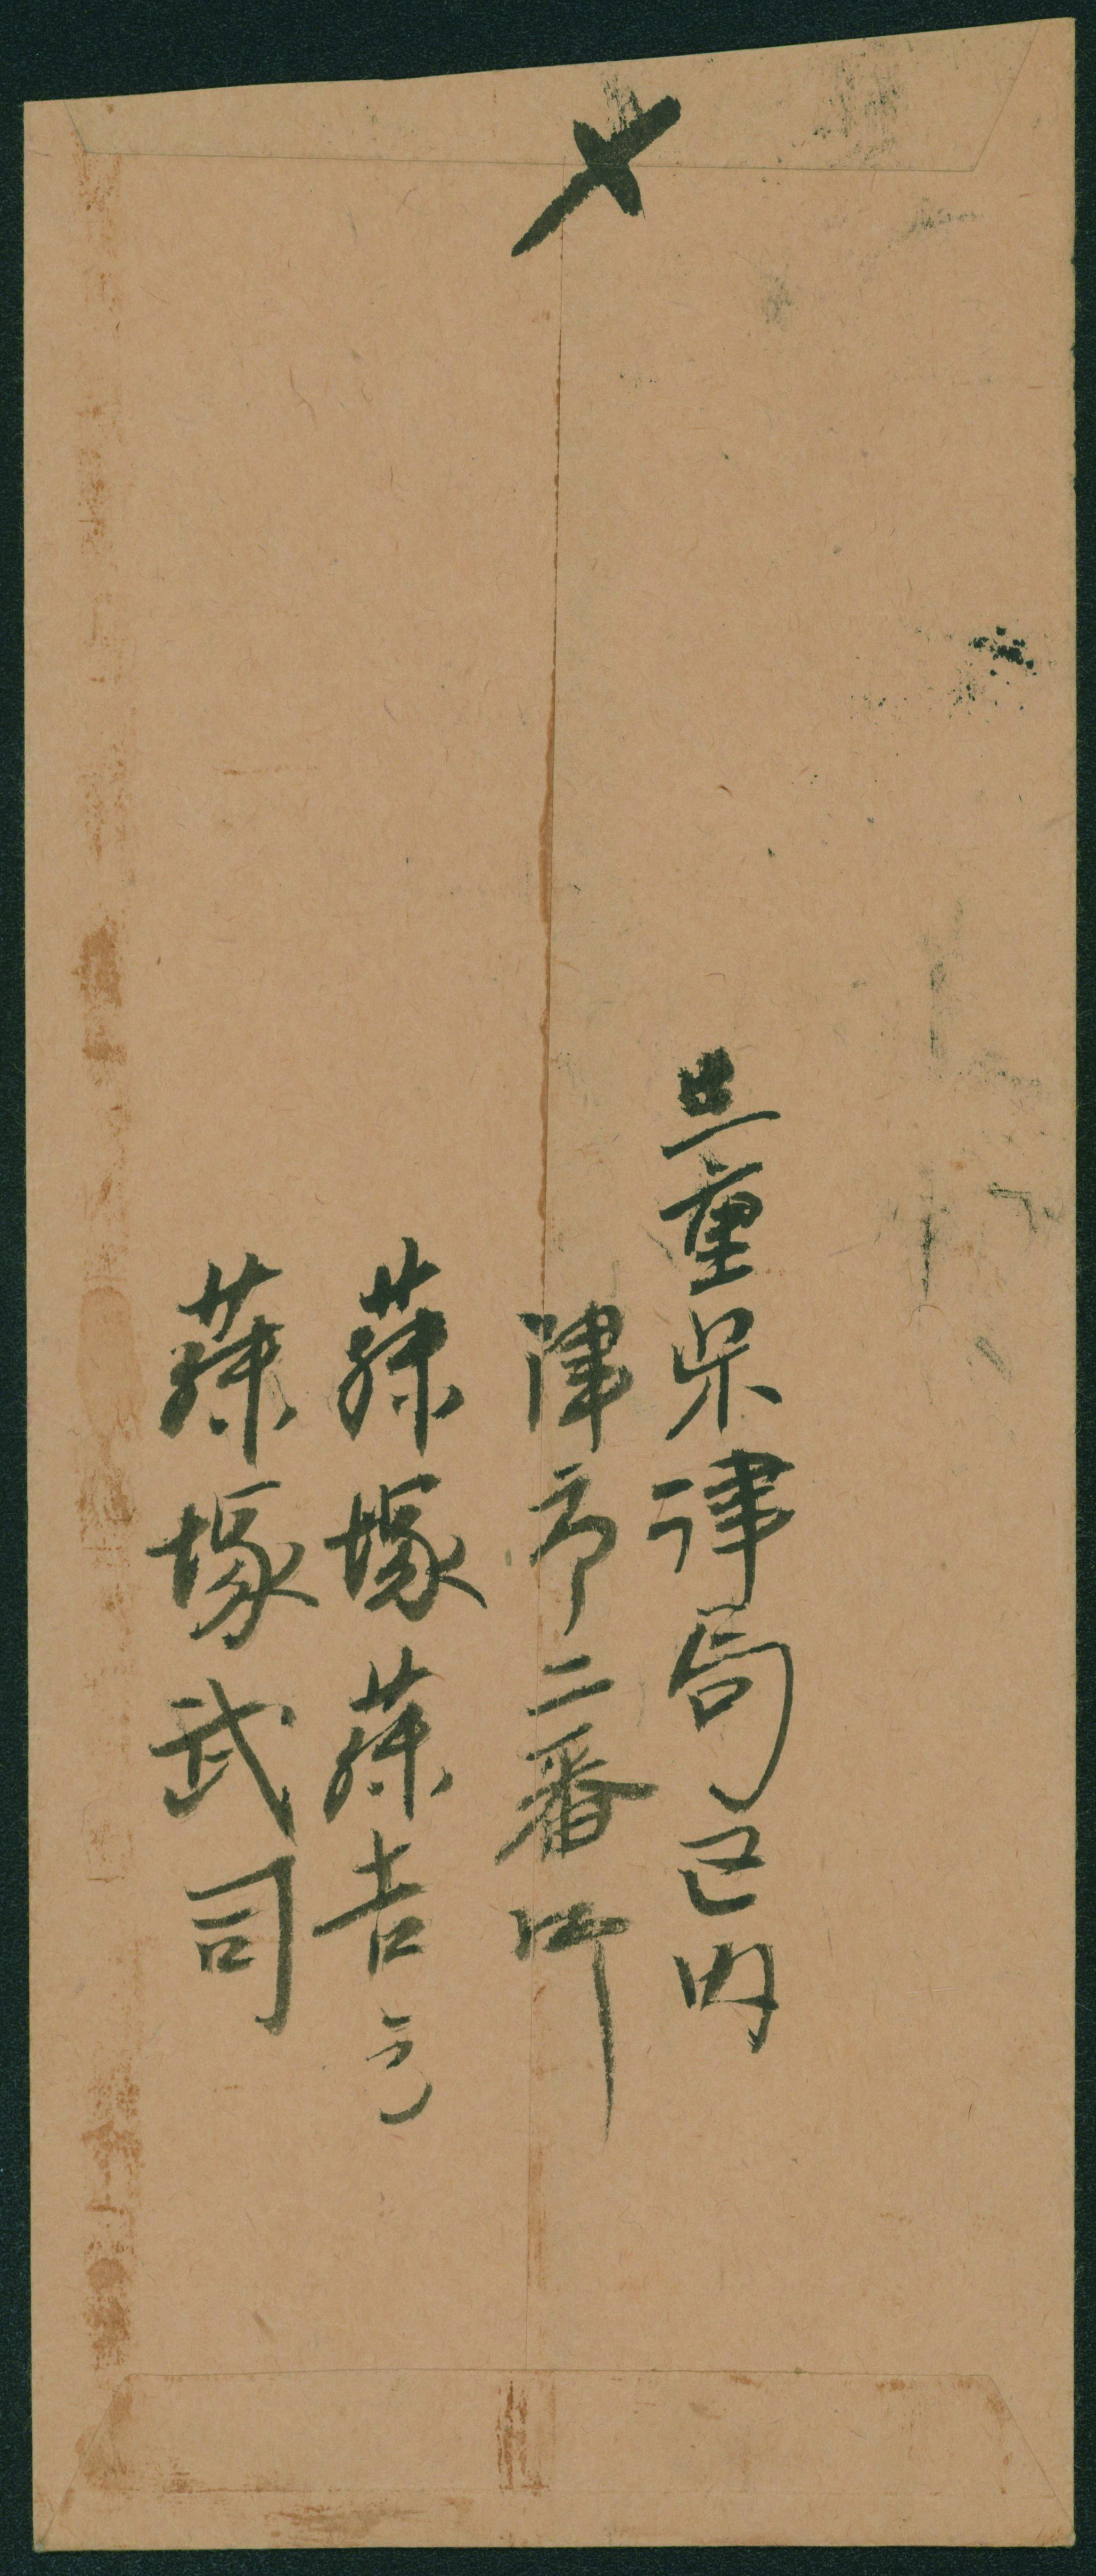 〆
三重県津局区内
津市二番町
藤塚藤吉方
藤塚武司